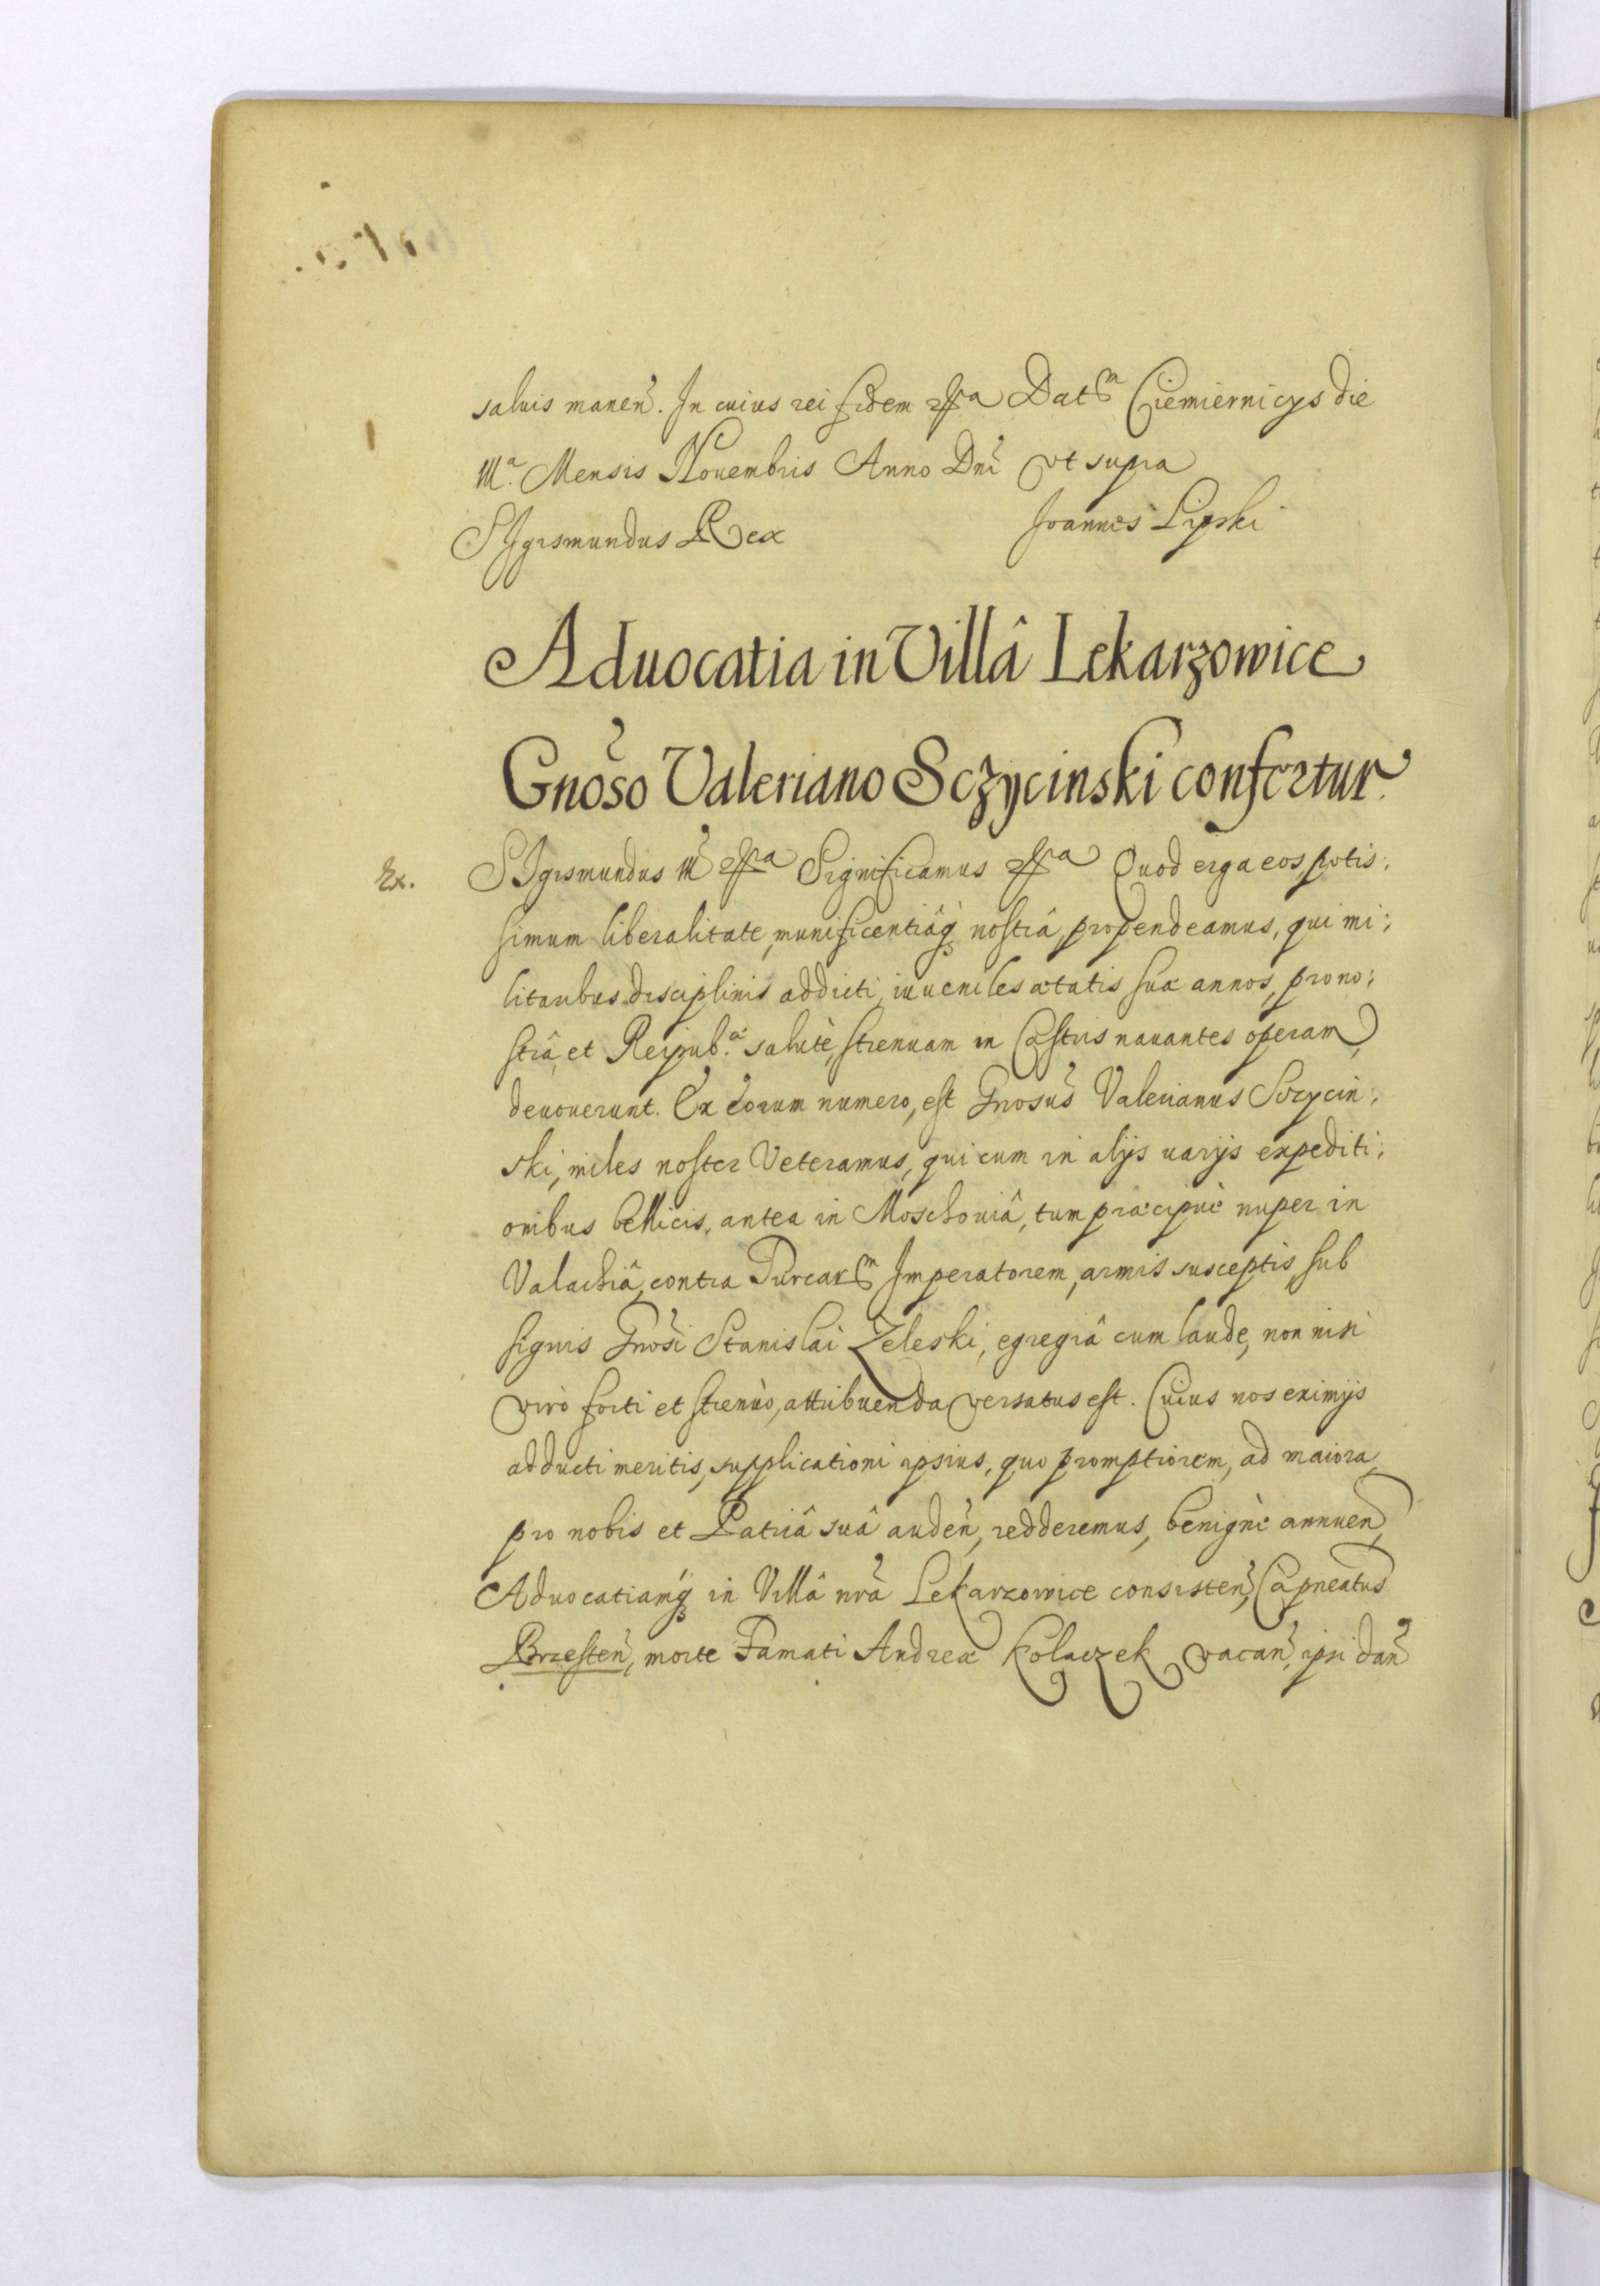 saluis manen̄. In cuius rei fidem etca Datm Ciemiernicys die
IIIa. Mensis Nouembris Anno Dnī vt supra
SIgismundus Rex Joannes Lipski
Aduocatia in Villâ Lekarzowice
Gnōso Valeriano Sczycinski confertur.
Ex. SIgismundus III etca Significamus etca Quod erga eos potis:
simum liberalitate, munificentiâq̨ nostrâ, propendeamus, qui mi:
litaribus disciplinis addicti, iuueniles ætatis suæ annos, pro no:
strâ, et Reipub.æ salutè, strenuam in Castris nauantes operam,
deuouerunt. Ex eorum numero, est Gnosus̄ Valerianus Sczycin:
ski, miles noster Veteranus, qui cum in alijs uarijs expediti:
onibus bellicis, antea in Moschouiâ, tum præcipuè nuper in
Valachiâ, contra Turcarm Imperatorem, armis susceptis, sub
signis Gnōsi Stanislai Zeleski, egregiâ cum laude, non nisi
virò forti et strenùo, attribuenda versatus est. Cuius nos eximijs
adducti meritis, supplicationi ipsius, quo promptiorem, ad maiora,
pro nobis et Patriâ suâ auden̄, redderemus, benignè annuen,
Aduocatiamq̨ in Villâ nrā Lekarzowice consisten̄, Capneatus
Brzesten̄, morte Famati Andreæ Kolaczek vacan̄, ipsi dan̄